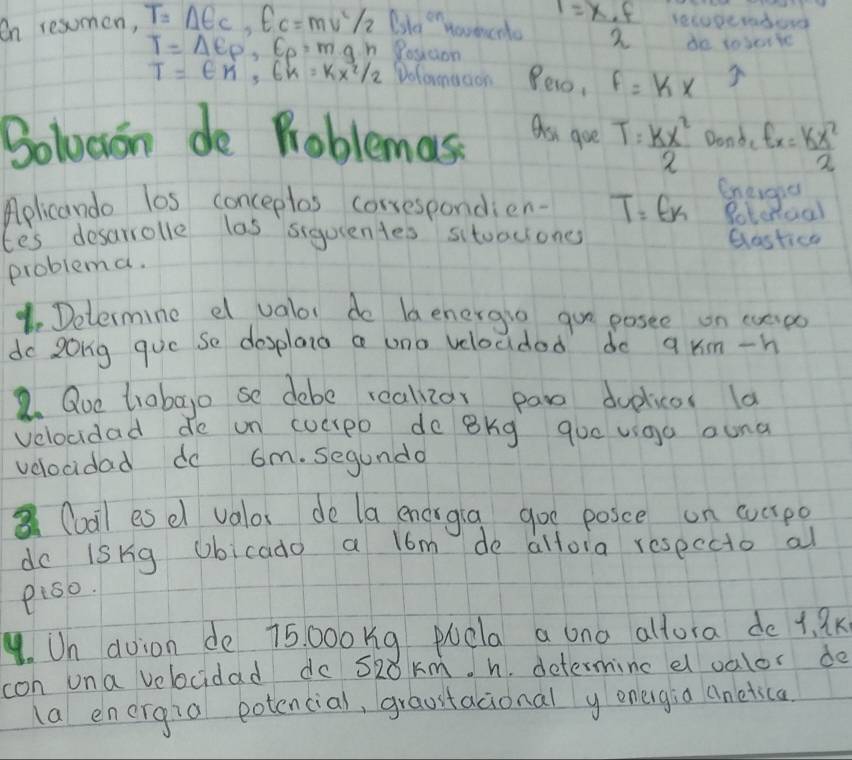 En resumen, T = ΔEc, Ec = mv²/2 Esta en Movimiento
T = ΔEp, Ep = m g h Posicion
T = EK, EK = Kx²/2 Deformacion
T = x.F / 2 recuperadora de resorte
Pero, F = Kx
Asi que T = Kx²/2 Donde Ex = Kx²/2
T = EK Energia Potencial Elastica
Solución de Problemas:
Aplicando los conceptos correspondien-
tes desarrolle las siguientes situaciones
problema.
1. Determine el valor de la energia que posee un cuerpo
de 20Kg que se desplaza a una velocidad de 9 Km - h
2. Que trabajo se debe realizar para duplicar la
velocidad de un cuerpo de 8Kg que viaja a una
velocidad de 6m. Segundo
3. Cual es el valor de la energia que posee un cuerpo
de 15Kg Ubicado a 16m de altora respecto al
piso.
4. Un avion de 75.000Kg a una altora de
con una velocidad de 520 Km . h. determine el valor de
la energia potencial, gravitacional y energia cinetica.